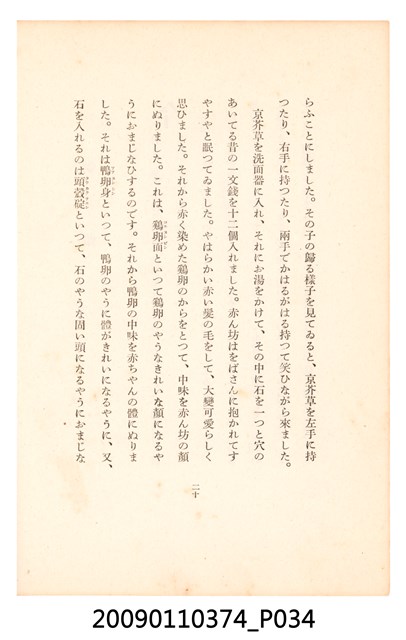 らふことにしました。その子の歸る樣子を見てゐると、京芥草を左手に持
つたり、右手に持つたり、兩手でかはるがはる持つて笑ひながら來ました。
京芥草を洗面器に入れ、それにお湯をかけて、その中に石を一つと穴の
あいてる昔の一文錢を十二個入れました。赤ん坊はをばさんに抱かれてす
やすやと眠つてゐました。やはらかい赤い髮の毛をして、大變可愛らしく
思ひました。それから赤く染めた鷄卵のからをとつて、中味を赤ん坊の顏
にぬりました。これは、鷄卵面といつて鷄卵のやうなきれいな顏になるや
うにおまじなひするのです。それから鴨卵の中味を赤ちやんの體にぬりま
した。それは鴨卵身といつて、鴨卵のやうに體がきれいになるやうに、又、
石を入れるのは頭殼碇といつて、石のやうな固い頭になるやうにおまじな
二十
20090110374_P034